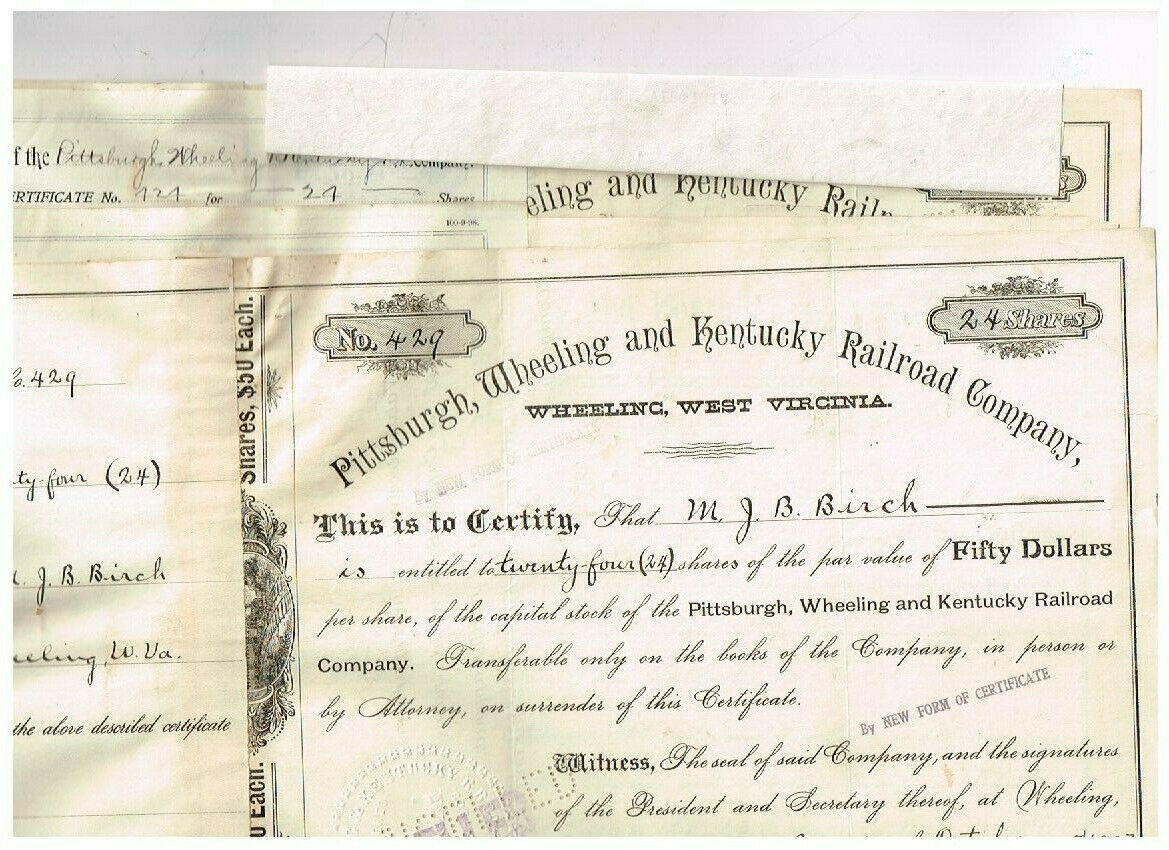 f the Pittsburgh, Wheeling & Kentucky R.R. Company.
ERTIFICATE No. for 24 Shares
100-9-98.
eling and Kentucky Railr
No. 429
24 Shares
Pittsburgh, Wheeling and Kentucky Railroad Company,
WHEELING, WEST VIRGINIA.
By NEW FORM OF CERTIFICATE
This is to Certify, That M. J. B. Birch
is entitled to twenty-four (24) shares of the par value of Fifty Dollars
per share, of the capital stock of the Pittsburgh, Wheeling and Kentucky Railroad
Company. Transferable only on the books of the Company, in person or
by Attorney, on surrender of this Certificate.
By NEW FORM OF CERTIFICATE
Witness, The seal of said Company, and the signatures
of the President and Secretary thereof, at Wheeling,
o. 429
ty-four (24)
. J. B. Birch
eeling, W. Va.
the above described certificate
Shares, $50 Each.
0 Each.